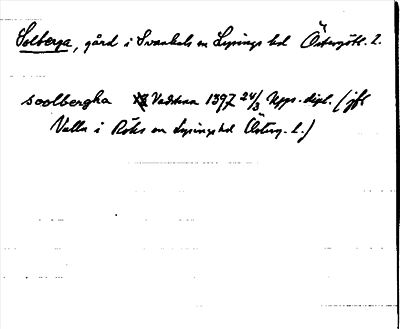 Solberga, gård i Svanhals sn Lysings hd Östergötl. l.
scolbergha Vadstena 1397 24/3 Upps. dipl. (jfr
Valla i Röks sn Lysings hd Österg. l.)